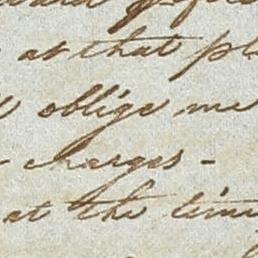 at that pl
oblige me
charges -
at the time